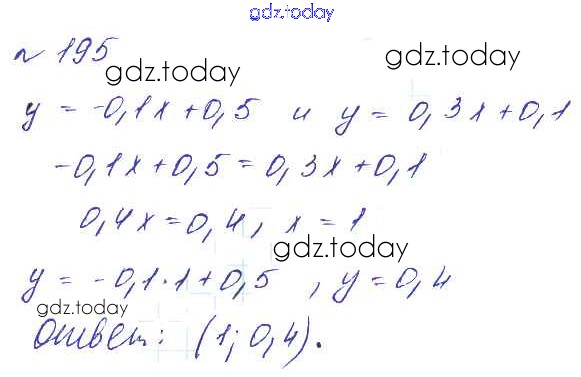 gdz.today
№ 195
gdz.today gdz.today
y = -0,1x + 0,5 и y = 0,3x + 0,1
-0,1x + 0,5 = 0,3x + 0,1
0,4x = 0,4, x = 1
gdz.today
y = -0,1·1 + 0,5, y = 0,4
gdz.today
Ответ: (1; 0,4).